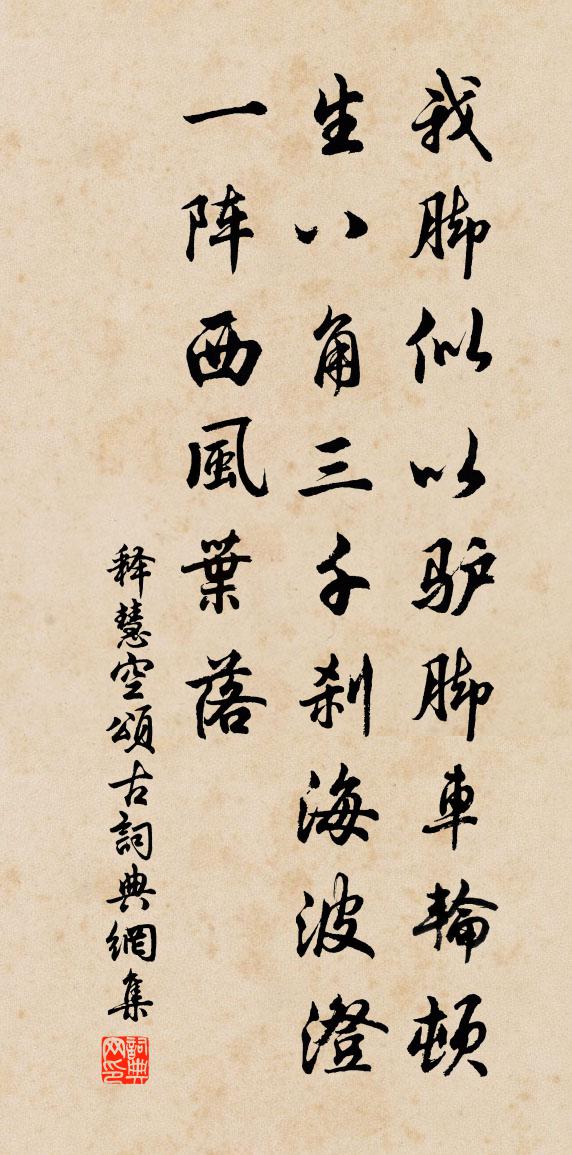 我脚似以驴脚車輪頓
生八角三千刹海波澄
一阵西風葉落
释慧空頌古詞典網集
詞典
网印